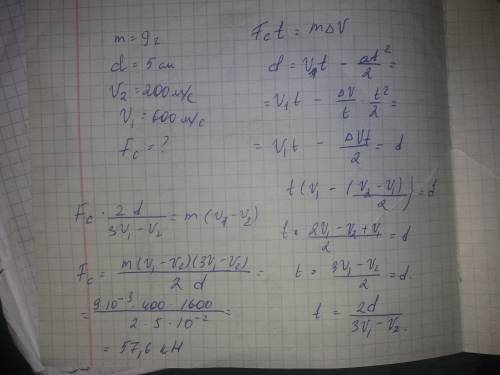 m = 9 г
d = 5 см
V₂ = 200 м/с
V₁ = 600 м/с
F_c = ?
F_c t = mΔV
d = V₁t − at²/2 =
= V₁t − ΔV/t · t²/2 =
= V₁t − ΔVt/2 = d
t(V₁ − (V₂ − V₁)/2) = d
t · (2V₁ − V₂ + V₁)/2 = d
t · (3V₁ − V₂)/2 = d
t = 2d/(3V₁ − V₂)
F_c · 2d/(3V₁ − V₂) = m(V₁ − V₂)
F_c = m(V₁ − V₂)(3V₁ − V₂)/(2d) =
= 9·10⁻³ · 400 · 1600/(2 · 5 · 10⁻²) =
= 57,6 кН